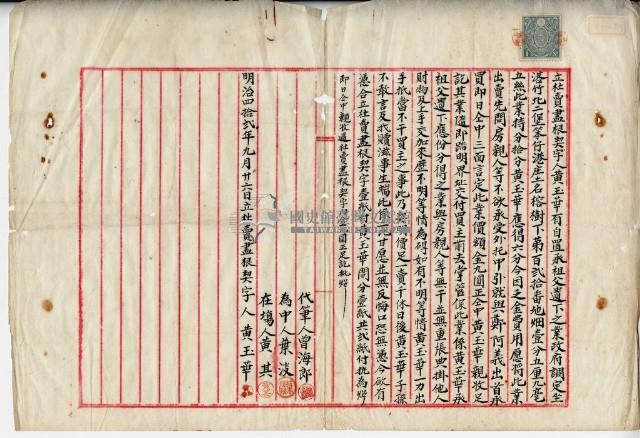 立杜賣盡根契字人黃玉華有自置承祖父遺下之業政府調定坐
落竹北二堡笨仔港庄土名榕樹下第百弍拾番地畑壹分五厘九毫
五絲此業持分拾分黃玉華應得六分今因乏金費用應將此業
出賣先問房親人等不欲承受外托中引就與鄭阿義出首承
買即日仝中三面言定此業價額金九圓正仝中黃玉華親收足
訖其業隨即踏明界址交付買主前去掌管保此業係黃玉華承
祖父遺下應份分得之業與房親人等無干並無重張典掛他人
財物及上手交加來歷不明等情為碍如有不明等情黃玉華一力出
手抵當不干買主之事此乃契價足一賣千休日後黃玉華子孫
不敢言及找贖滋事生端此係甘愿並無反悔口恐無憑今欲有
憑合立杜賣盡根契字壹紙付黃玉華鬮分壹紙共弍紙付執為炤
即日仝中親收過杜賣盡根契字價金圓正足訖批炤
代筆人曾海郎
為中人葉波
在塲人黃其
明治四拾弍年九月廿六日立杜賣盡根契字人黃玉華
國史館臺灣文獻館